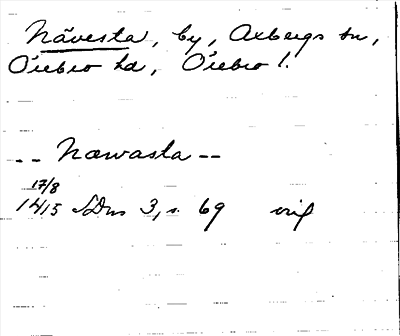 Nävesta, by, Axbergs sn,
Örebro hd, Örebro l.
-- Næwasta --
17/8
1415 SDns 3, s. 69 orig